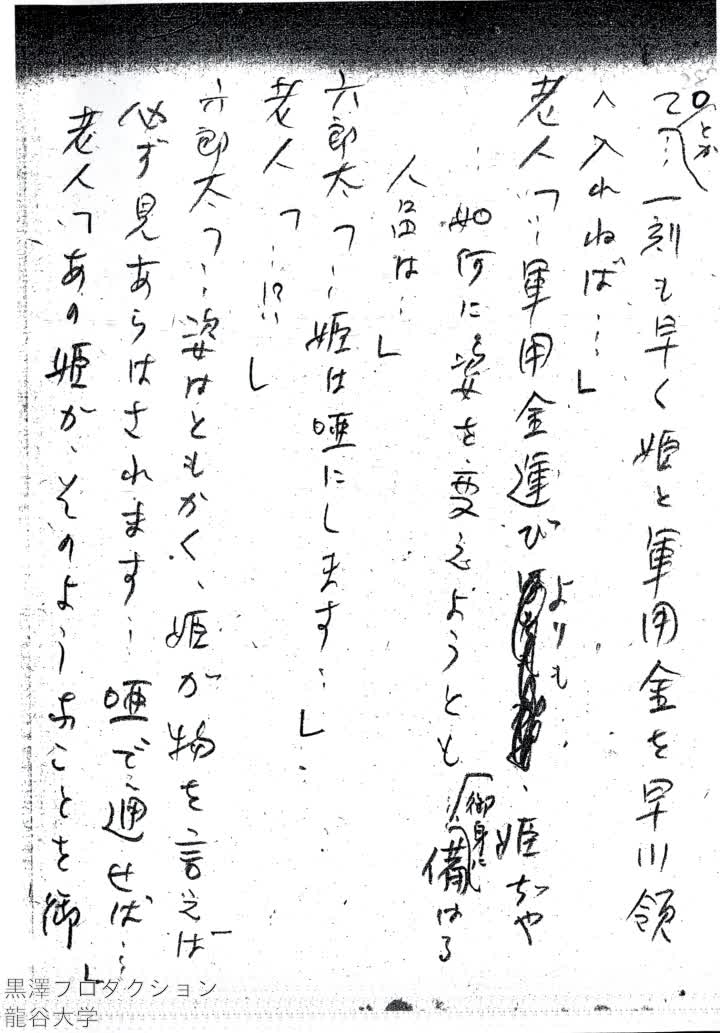 とか
て…一刻も早く姫と軍用金を早川領
へ入れねば…」
老人「…軍用金運びよりも、姫ぢや
…如何に姿を変えようとも御身に備はる
人品は…」
六郎太「…姫は唖にします…」
老人「…!?…」
六郎太「…姿はともかく、姫が物を言えば
必ず見あらはされます…唖で通せば…」
老人「あの姫が、そのようなことを御
黒澤プロダクション
龍谷大学